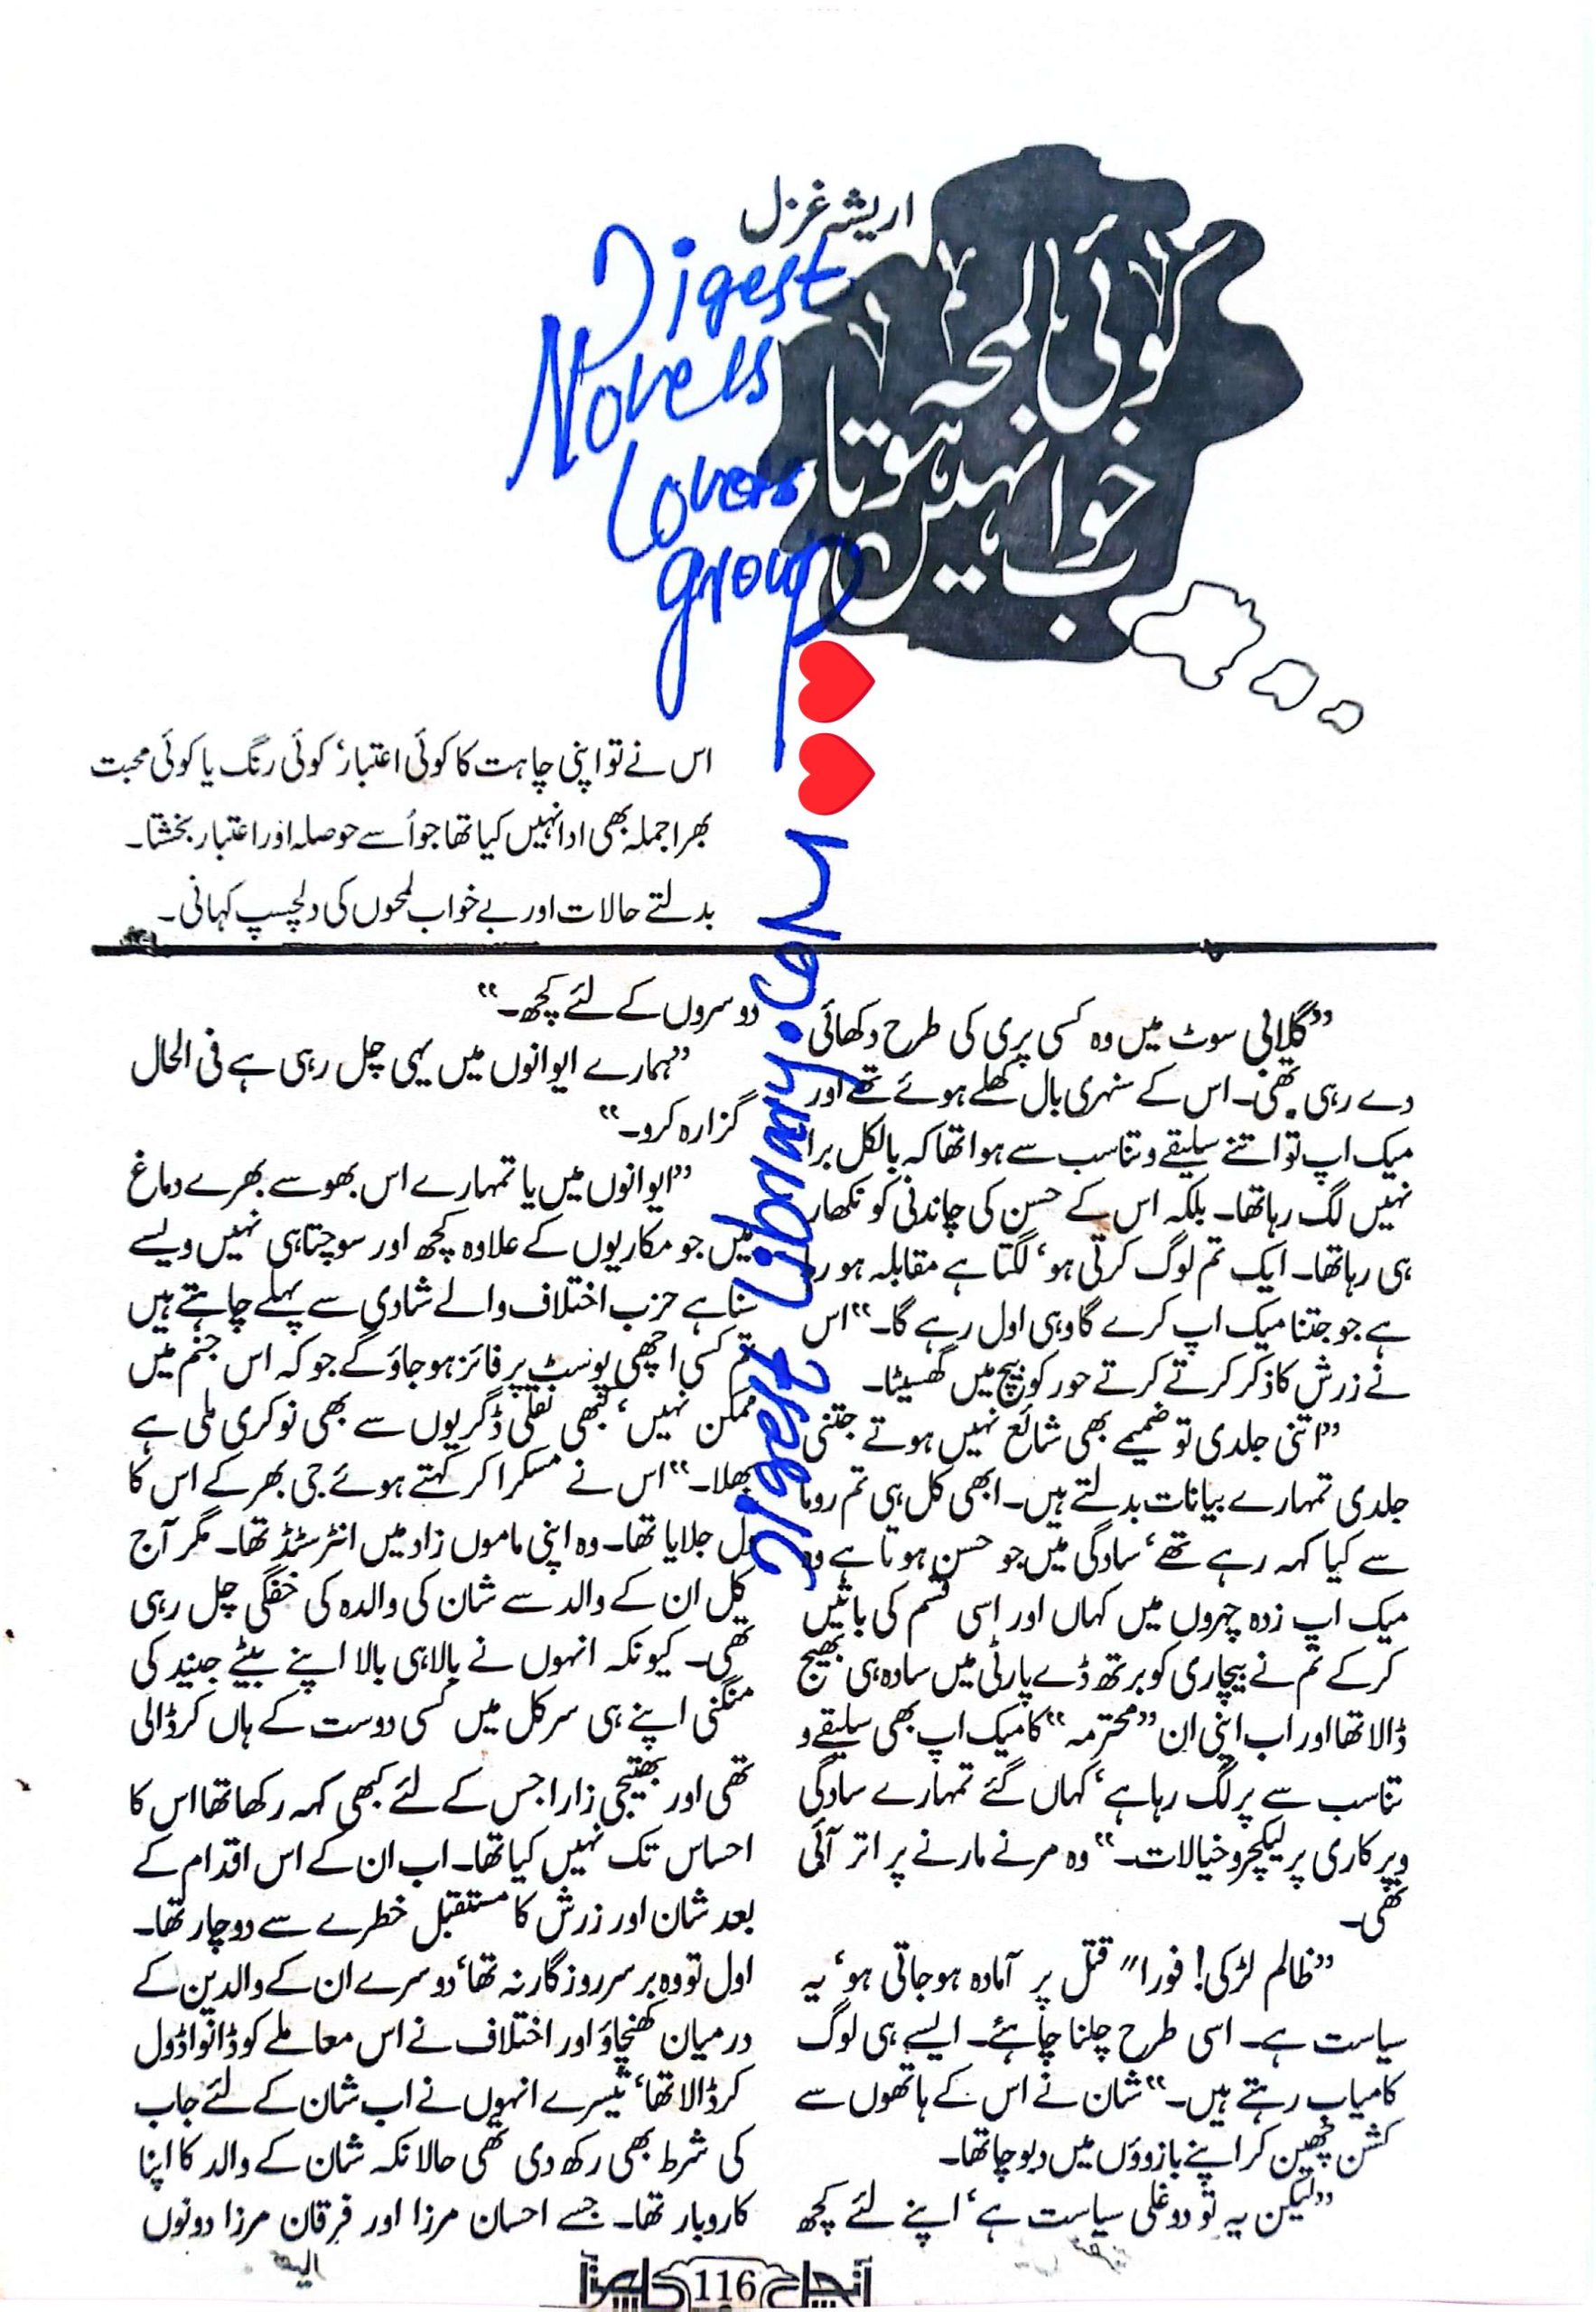 اریشہ غزل
کوئی لمحہ
خواب نہیں ہوتا
Digest
Novels
Lovers
group
اس نے تو اپنی چاہت کا کوئی اعتبار‘ کوئی رنگ یا کوئی محبت
بھرا جملہ بھی ادا نہیں کیا تھا جو اُسے حوصلہ اور اعتبار بخشتا۔
بدلتے حالات اور بے خواب لمحوں کی دلچسپ کہانی۔
”گلابی سوٹ میں وہ کسی پری کی طرح دکھائی
دے رہی تھی۔ اس کے سنہری بال کھلے ہوئے تھے اور
میک اپ تو اتنے سلیقے و تناسب سے ہوا تھا کہ بالکل برا
نہیں لگ رہا تھا۔ بلکہ اس کے حسن کی چاندنی کو نکھار
ہی رہا تھا۔ ایک تم لوگ کرتی ہو‘ لگتا ہے مقابلہ ہو رہا
ہے جو جتنا میک اپ کرے گا وہی اول رہے گا۔“ اس
نے زرش کا ذکر کرتے کرتے حور کو بیچ میں گھسیٹا۔
”اتنی جلدی تو ضمیمے بھی شائع نہیں ہوتے جتنی
جلدی تمہارے بیانات بدلتے ہیں۔ ابھی کل ہی تم روما
سے کیا کہہ رہے تھے‘ سادگی میں جو حسن ہوتا ہے وہ
میک اپ زدہ چہروں میں کہاں اور اسی قسم کی باتیں
کر کے تم نے بیچاری کو برتھ ڈے پارٹی میں سادہ ہی بھیج
ڈالا تھا اور اب اپنی ان ”محترمہ“ کا میک اپ بھی سلیقے و
تناسب سے پر لگ رہا ہے‘ کہاں گئے تمہارے سادگی
و پرکاری پر لیکچر و خیالات۔“ وہ مرنے مارنے پر اتر آئی
تھی۔
”ظالم لڑکی! فوراً“ قتل پر آمادہ ہو جاتی ہو‘ یہ
سیاست ہے۔ اسی طرح چلنا چاہئے۔ ایسے ہی لوگ
کامیاب رہتے ہیں۔“ شان نے اس کے ہاتھوں سے
کشن چھین کر اپنے بازوؤں میں دبوچا تھا۔
”لیکن یہ تو دوغلی سیاست ہے‘ اپنے لئے کچھ
دوسروں کے لئے کچھ۔“
”ہمارے ایوانوں میں یہی چل رہی ہے فی الحال
گزارہ کرو۔“
”ایوانوں میں یا تمہارے اس بھوسے بھرے دماغ
میں جو مکاریوں کے علاوہ کچھ اور سوچتا ہی نہیں ویسے
سنا ہے حزب اختلاف والے شادی سے پہلے چاہتے ہیں
تم کسی اچھی پوسٹ پر فائز ہو جاؤ گے جو کہ اس جنم میں
ممکن نہیں‘ کبھی نقلی ڈگریوں سے بھی نوکری ملی ہے
بھلا۔“ اس نے مسکرا کر کہتے ہوئے جی بھر کے اس کا
دل جلایا تھا۔ وہ اپنی ماموں زاد میں انٹرسٹڈ تھا۔ مگر آج
کل ان کے والد سے شان کی والدہ کی خفگی چل رہی
تھی۔ کیونکہ انہوں نے بالا ہی بالا اپنے بیٹے جنید کی
منگنی اپنے ہی سرکل میں کسی دوست کے ہاں کر ڈالی
تھی اور بھتیجی زارا جس کے لئے کبھی کہہ رکھا تھا اس کا
احساس تک نہیں کیا تھا۔ اب ان کے اس اقدام کے
بعد شان اور زرش کا مستقبل خطرے سے دوچار تھا۔
اول تو وہ برسر روزگار نہ تھا‘ دوسرے ان کے والدین کے
درمیان کھنچاؤ اور اختلاف نے اس معاملے کو ڈانواڈول
کر ڈالا تھا‘ تیسرے انہوں نے اب شان کے لئے جاب
کی شرط بھی رکھ دی تھی حالانکہ شان کے والد کا اپنا
کاروبار تھا۔ جسے احسان مرزا اور فرقان مرزا دونوں
آنچل 116 کراچی